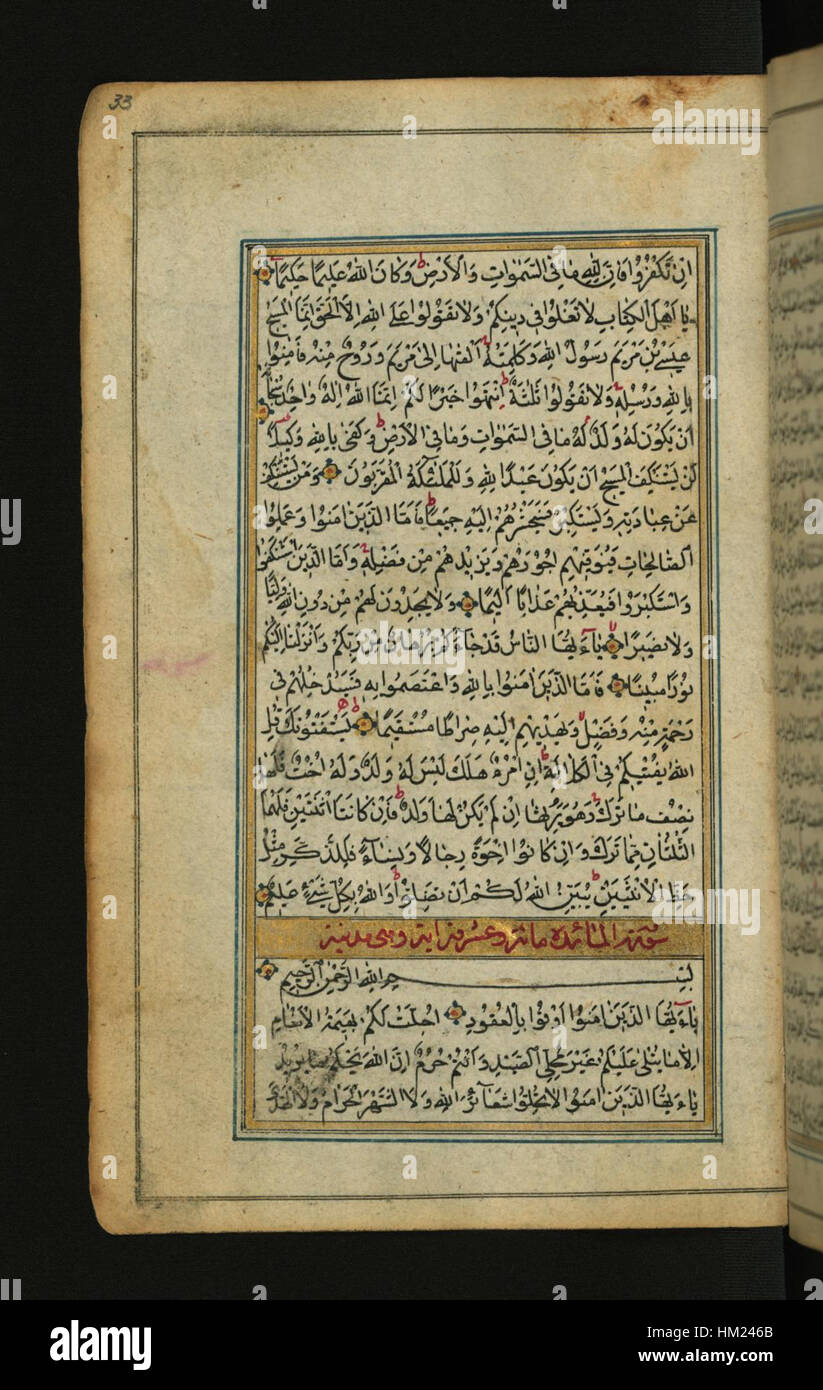 33
ان تكفروا فان لله ما في السموات والارض وكان الله عليما حكيما
يا اهل الكتاب لا تغلوا في دينكم ولا تقولوا على الله الا الحق انما المسيح
عيسى بن مريم رسول الله وكلمته القيها الى مريم وروح منه فامنوا
بالله ورسله ولا تقولوا ثلثة انتهوا خيرا لكم انما الله اله واحد سبحانه
ان يكون له ولد له ما في السموات وما في الارض وكفى بالله وكيلا
لن يستنكف المسيح ان يكون عبدا لله ولا الملئكة المقربون ومن يستنكف
عن عبادته ويستكبر فسيحشرهم اليه جميعا فاما الذين امنوا وعملوا
الصالحات فيوفيهم اجورهم ويزيدهم من فضله واما الذين استنكفوا
واستكبروا فيعذبهم عذابا اليما ولا يجدون لهم من دون الله وليا
ولا نصيرا يا ءيها الناس قد جاءكم برهان من ربكم وانزلنا اليكم
نورا مبينا فاما الذين امنوا بالله واعتصموا به فسيدخلهم في
رحمة منه وفضل ويهديهم اليه صراطا مستقيما يستفتونك قل
الله يفتيكم في الكلالة ان امرؤ هلك ليس له ولد وله اخت فلها
نصف ما ترك وهو يرثها ان لم يكن لها ولد فان كانتا اثنتين فلهما
الثلثان مما ترك وان كانوا اخوة رجالا ونساء فللذكر مثل
حظ الانثيين يبين الله لكم ان تضلوا والله بكل شيء عليم
سورة المائدة مائة وعشرون اية وهي مدنية
بسم الله الرحمن الرحيم
يا ءيها الذين امنوا اوفوا بالعقود احلت لكم بهيمة الانعام
الا ما يتلى عليكم غير محلي الصيد وانتم حرم ان الله يحكم ما يريد
يا ءيها الذين امنوا لا تحلوا شعائر الله ولا الشهر الحرام ولا الهدي
alamy
Image ID: HM246B
www.alamy.com